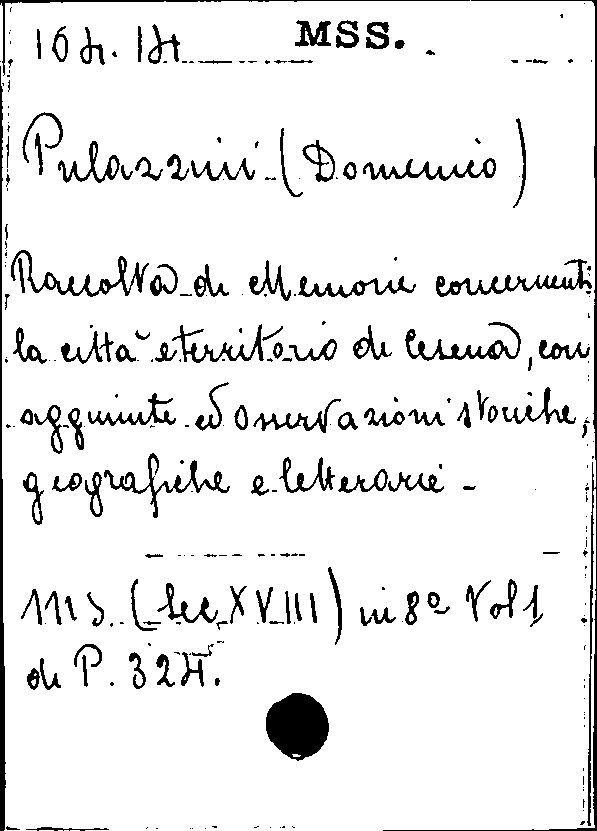 164.14 MSS.
Pulazzini (Domenico)
Raccolta di Memorie concernenti
la città e territorio di Cesena, con
aggiunte ed osservazioni storiche,
geografiche e letterarie -
MS. (Sec. XVIII) in 8º Vol 1
di P. 324.